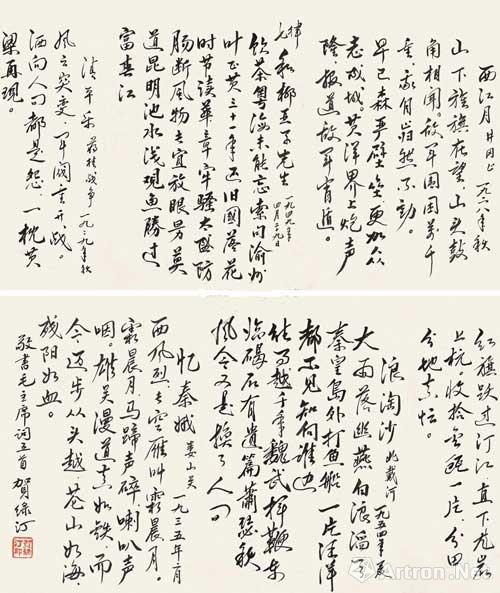 西江月 井冈山 一九二八年秋
山下旌旗在望，山头鼓
角相闻。敌军围困万千
重，我自岿然不动。
早已森严壁垒，更加众
志成城。黄洋界上炮声
隆，报道敌军宵遁。
七律 和柳亚子先生 一九四九年四月二十九日
饮茶粤海未能忘，索句渝州
叶正黄。三十一年还旧国，落花
时节读华章。牢骚太盛防
肠断，风物长宜放眼量。莫
道昆明池水浅，观鱼胜过
富春江
清平乐 蒋桂战争 一九二九年秋
风云突变，军阀重开战。
洒向人间都是怨，一枕黄
粱再现。
红旗跃过汀江，直下龙岩
上杭。收拾金瓯一片，分田
分地真忙。
浪淘沙 北戴河 一九五四年夏
大雨落幽燕，白浪滔天
秦皇岛外打鱼船一片汪洋
都不见知向谁边
往事越千年魏武挥鞭东
临碣石有遗篇萧瑟秋
风今又是换了人间
忆秦娥 娄山关 一九三五年二月
西风烈，长空雁叫霜晨月。
霜晨月，马蹄声碎，喇叭声
咽。雄关漫道真如铁，而
今迈步从头越。苍山如海，
残阳如血。
敬书毛主席词五首 贺绿汀
Artron.Net